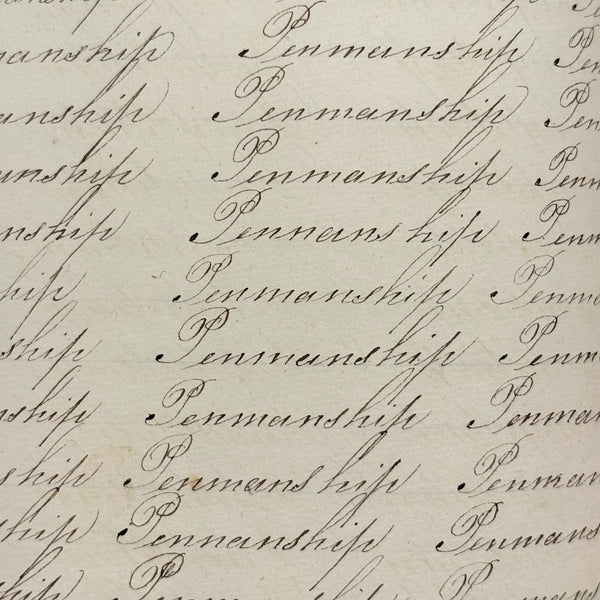 anship Penmanship Pen
anship Penmanship Pen
anship Penmanship Penm
nship Penmanship Penn
hip Penmanship Penma
ship Penmanship Penm
nship Penmanship Penman
ship Penmanship Penman
ship Pennanship Penmans
ship Penmanship Penmans